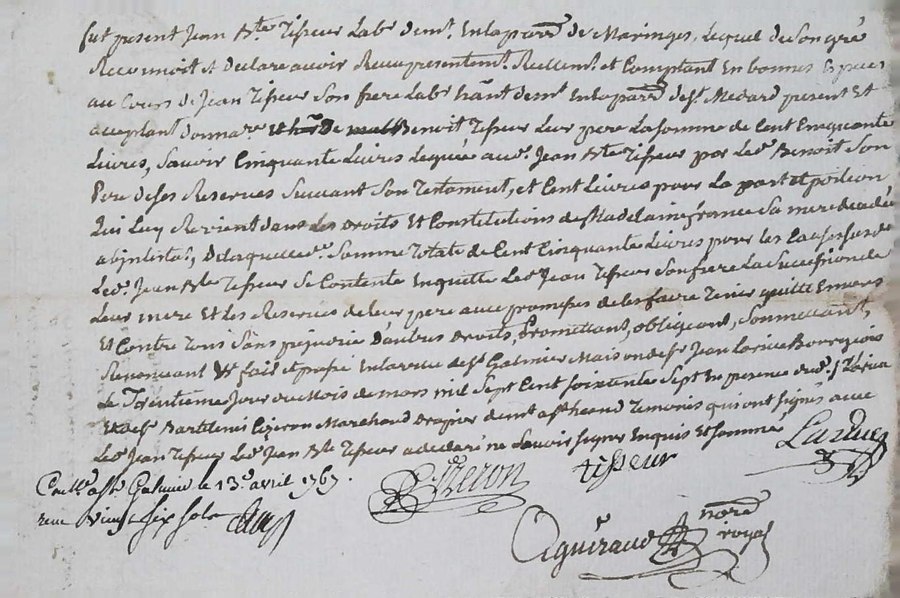 fut present Jean Bte Tisseur Labr demt en la parre de Maringes, Lequel de Son gré
Reconnoit et declare avoir Reçu presentemt. Reellemt. et Comptant En bonnes Espèces
au Cours de Jean Tisseur Son frere Labr hant demt En la parre de St. Medard present Et
acceptant donnare Benoit Tisseur Leur pere La somme de Cent Cinquante
Livres, Savoir Cinquante Livres Leguée aud. Jean Bte Tisseur par Led. Benoit Son
Pere de ses Reserves Suivant Son Testament, et Cent Livres pour La part et portion
Qui Luy Revient dans les Droits Et Constitutions de Madelaine france Sa mere decedée
abintestat, De laquelle d. Somme Totale de Cent Cinquante Livres pour les Causes susd.
Led. Jean Bte Tisseur Se Contente En quitte Led. Jean Tisseur Son frere La Succession de
Leur mere Et Les Reserves de leur pere avec promesses de les faire Tenir quitte Envers
Et Contre Tous Sans prejudice d'autres Droits, Promettant, obligeant, Soumettant,
Renonçant fait et passé En la ville de St. Galmier Maison de Sr Jean Larue Bourgeois
Le Trentieme Jour du Mois de mars mil Sept Cent Soixante Sept En presence dud. Sr Larue
Et de Sr Bartelemi Marchand drapier demt a St Temoins qui ont Signés avec
Led. Jean Tisseur Led. Jean Bte Tisseur a declaré ne Savoir Signer Enquis Et Sommé
Larue
tisseur
Conllé a St Galmier le 13e. avril 1767.
reçu Six Sols
Aguiraud nore
royal